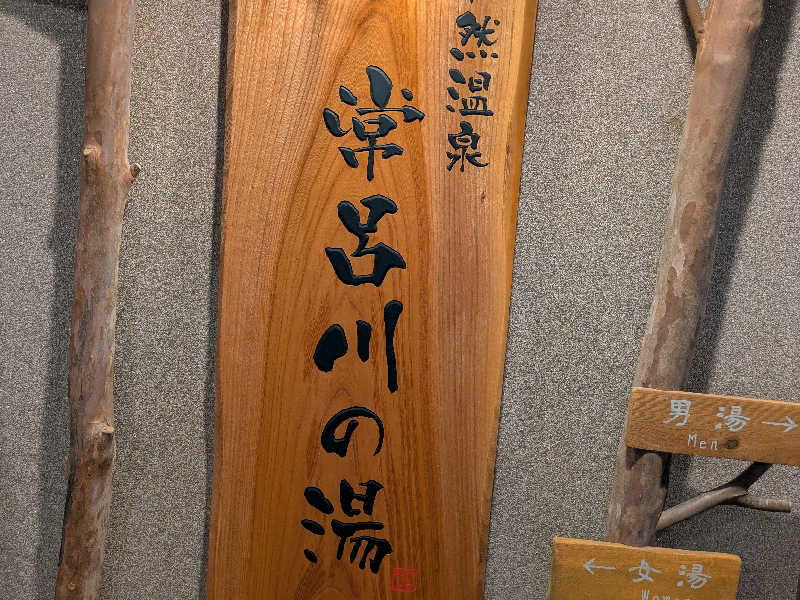 然温泉
常呂川の湯
男湯→
Men
←女湯
Women